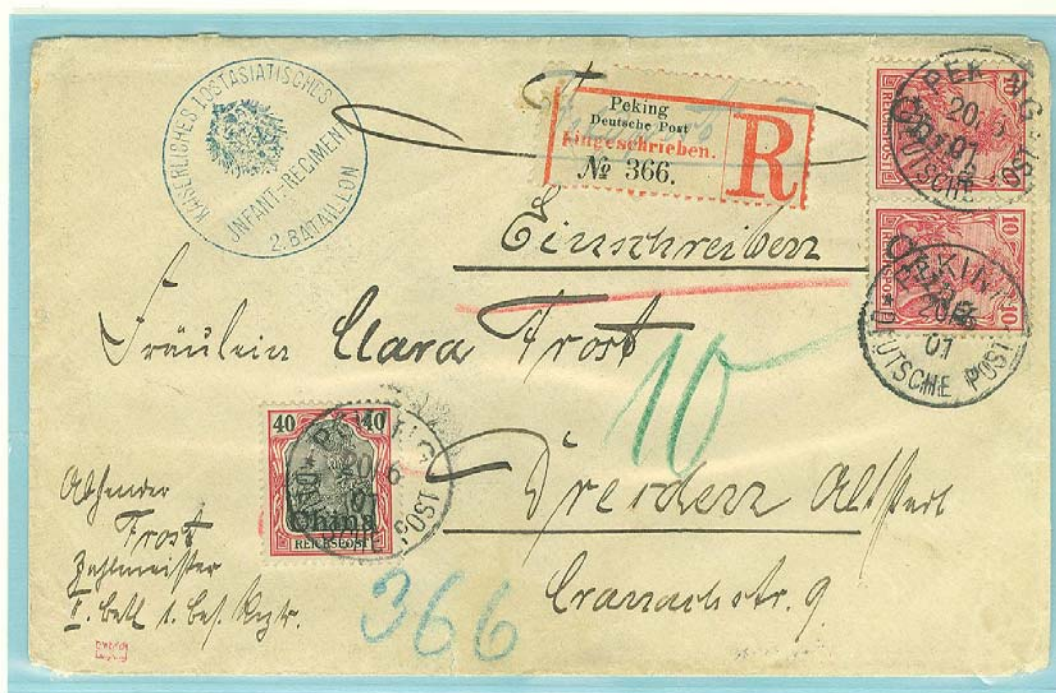 KAISERLICHES 1. OSTASIATISCHES
INFANT-REGIMENT
2. BATAILLON
Peking
Deutsche Post
Eingeschrieben.
№ 366.
R
10
REICHSPOST
China
PEKING
20/6
01
DEUTSCHE POST
10 10
REICHSPOST
PEKING
20/6
01
DEUTSCHE POST
Einschreiben
Fräulein Clara Frost
10
40 40
China
REICHSPOST
PEKING
20/6
01
DEUTSCHE POST
Dresden Altstadt
Cranachstr. 9
Absender
Frost
Zahlmeister
366